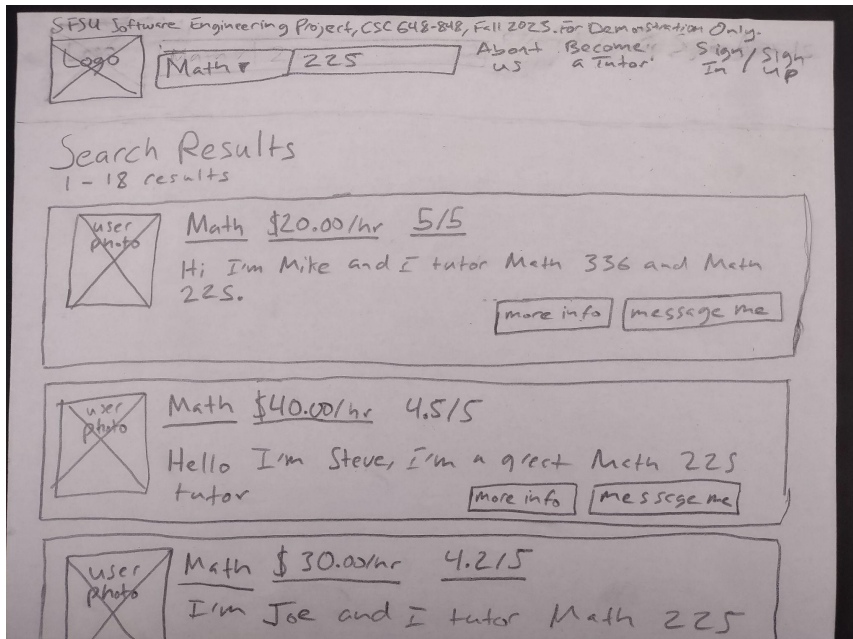 SFSU Software Engineering Project, CSC 648-848, Fall 2023. For Demonstration Only.
Logo
Math ▾ 225
About us
Become a Tutor
Sign In / Sign up
Search Results
1 - 18 results
user photo
Math $20.00/hr 5/5
Hi I'm Mike and I tutor Math 336 and Math
225.
more info message me
user photo
Math $40.00/hr 4.5/5
Hello I'm Steve, I'm a great Math 225
tutor
more info message me
user photo
Math $30.00/hr 4.2/5
I'm Joe and I tutor Math 225